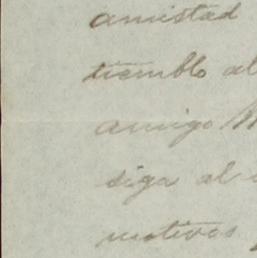 amistad
tiemblo al
amigo M
siga al
motivos